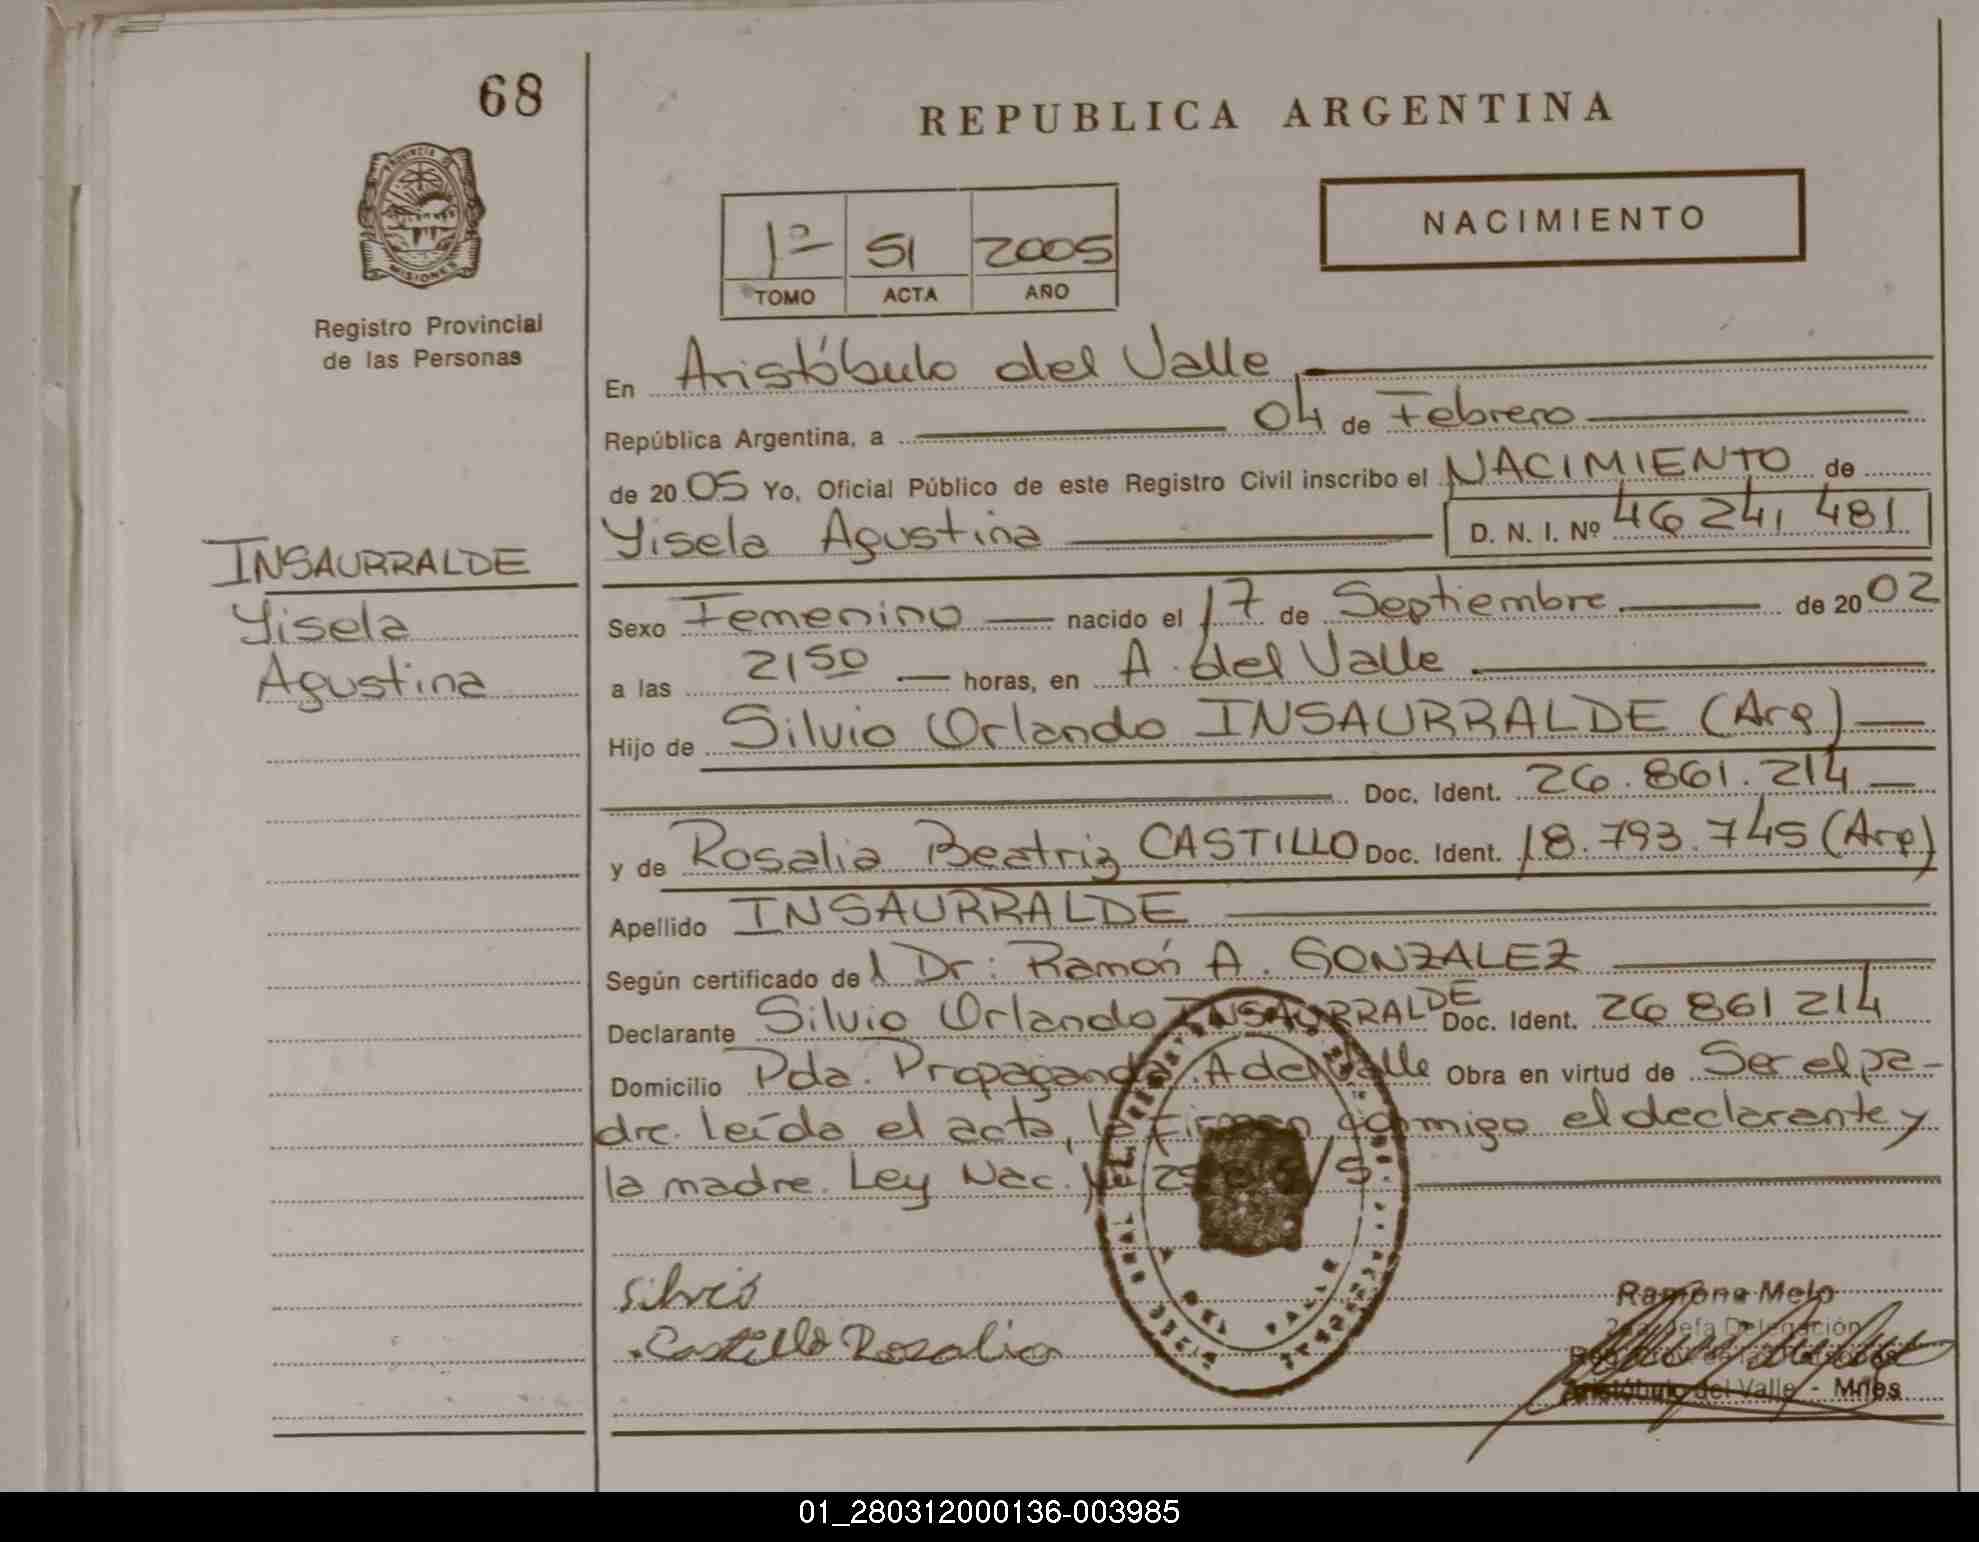 68
PROVINCIA DE
MISIONES
Registro Provincial
de las Personas
REPUBLICA ARGENTINA
1º SI 2005
TOMO ACTA AÑO
NACIMIENTO
En Aristóbulo del Valle
República Argentina, a 04 de Febrero
de 2005 Yo, Oficial Público de este Registro Civil inscribo el NACIMIENTO de
Yisela Agustina D. N. I. Nº 46 241 481
INSAURRALDE
Yisela
Agustina
Sexo Femenino nacido el 17 de Septiembre de 2002
a las 2150 horas, en A. del Valle
Hijo de Silvio Orlando INSAURRALDE (Arg.)
Doc. Ident. 26.861.214
y de Rosalia Beatriz CASTILLO Doc. Ident. 18.793.745 (Arg)
Apellido INSAURRALDE
Según certificado del Dr: Ramón A. GONZALEZ
Declarante Silvio Orlando INSAURRALDE Doc. Ident. 26 861 214
Domicilio Pda. Propaganda. A del Valle Obra en virtud de Ser el pa-
dre. leída el acta, la firman conmigo el declarante y
la madre. Ley Nac.
DEL VALLE
Silvio
Castillo Rosalia
Ramona Melo
Jefa Delegación
Aristóbulo del Valle - Mnes
01_280312000136-003985